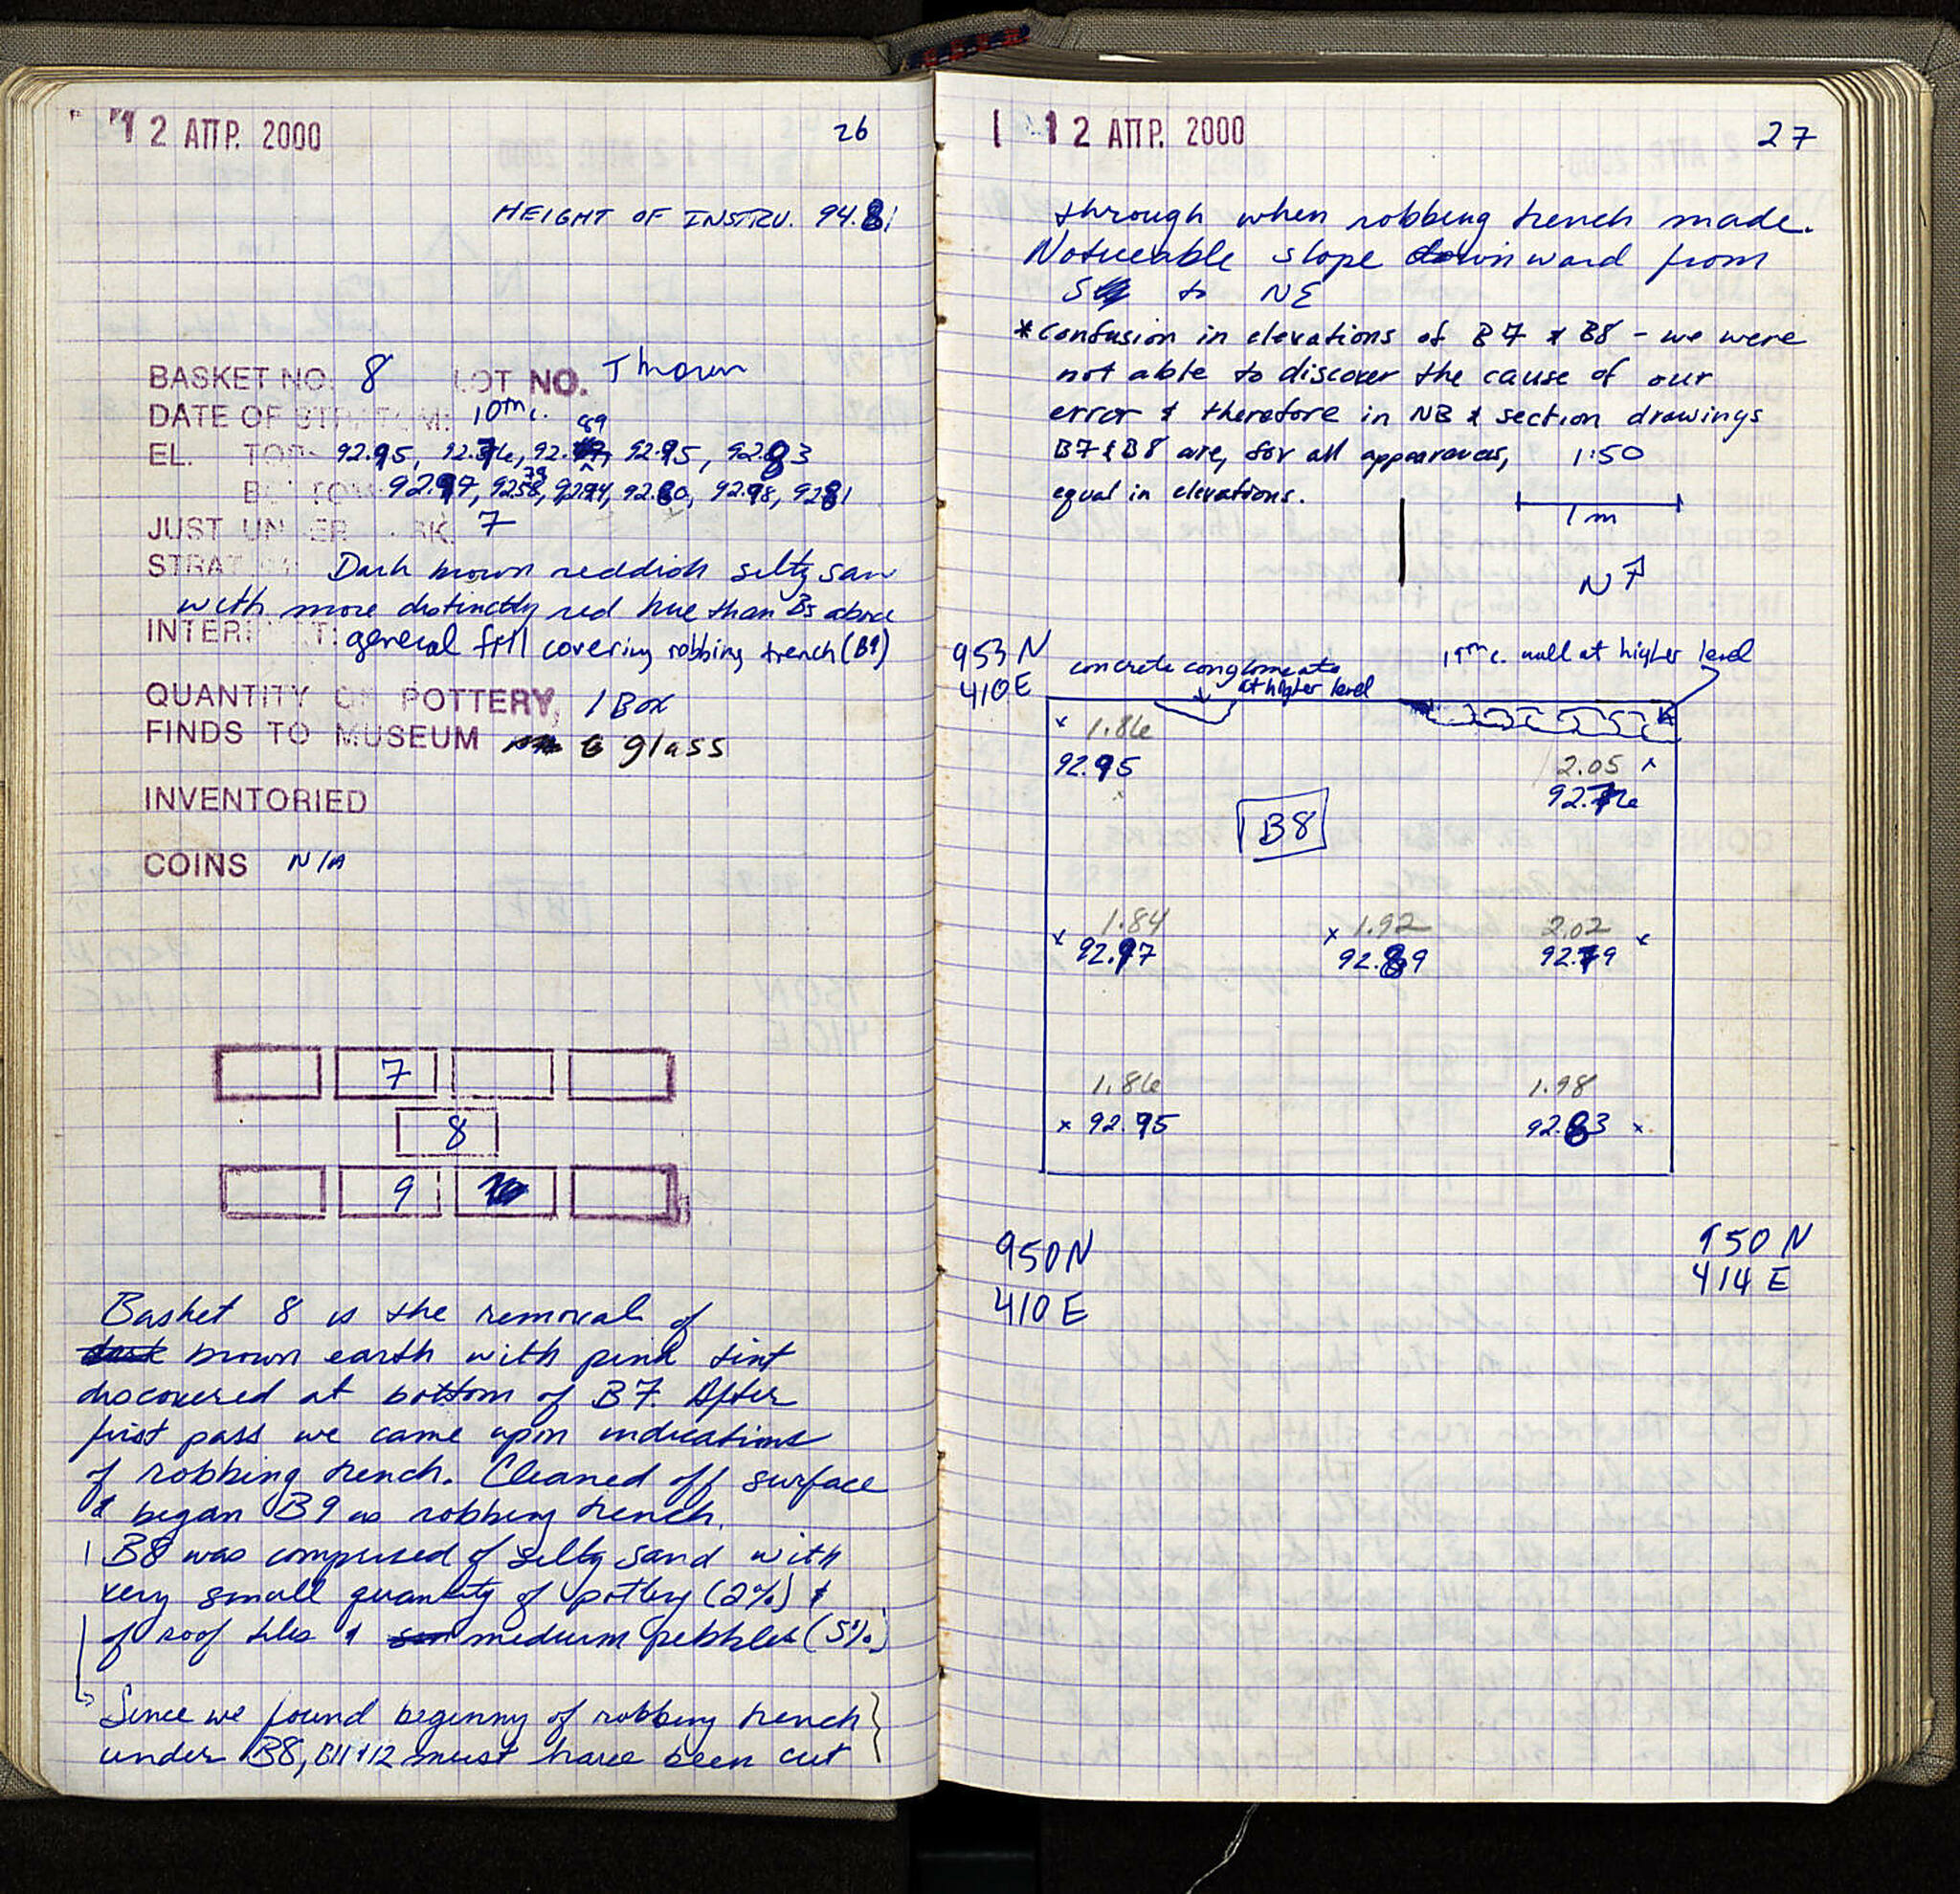 12 ΑΠΡ. 2000
26
HEIGHT OF INSTRU. 94.81
BASKET NO. 8 LOT NO. Thrown
DATE OF STRATUM: 10th c.
EL. TOP: 92.95, 92.76, 92.89, 92.95, 92.83
BOTTOM: 92.97, 92.79, 92.94, 92.80, 92.98, 92.81
JUST UNDER BSK. 7
STRATUM Dark brown reddish silty san
with more distinctly red hue than Bs above
INTERPRET: general fill covering robbing trench (B9)
QUANTITY OF POTTERY, 1 Box
FINDS TO MUSEUM 6 glass
INVENTORIED
COINS N/A
7
8
9
Basket 8 is the removal of
dark brown earth with pink tint
discovered at bottom of B7. After
first pass we came upon indications
of robbing trench. Cleaned off surface
& began B9 as robbing trench.
B8 was comprised of silty sand with
very small quantity of pottery (2%) &
of roof tiles & medium pebbles (5%)
Since we found beginning of robbing trench
under B8, B11+12 must have been cut
12 ΑΠΡ. 2000
27
through when robbing trench made.
Noticeable slope downward from
S to NE
*Confusion in elevations of B7 & B8 - we were
not able to discover the cause of our
error & therefore in NB & section drawings
B7 & B8 are, for all appearances,
equal in elevations.
1:50
1m
N
953 N
410 E
concrete conglomerate
at higher level
19th c. wall at higher level
1.86
92.95
2.05
92.76
B8
1.84
92.97
1.92
92.89
2.02
92.79
1.86
92.95
1.98
92.83
950 N
410 E
950 N
414 E